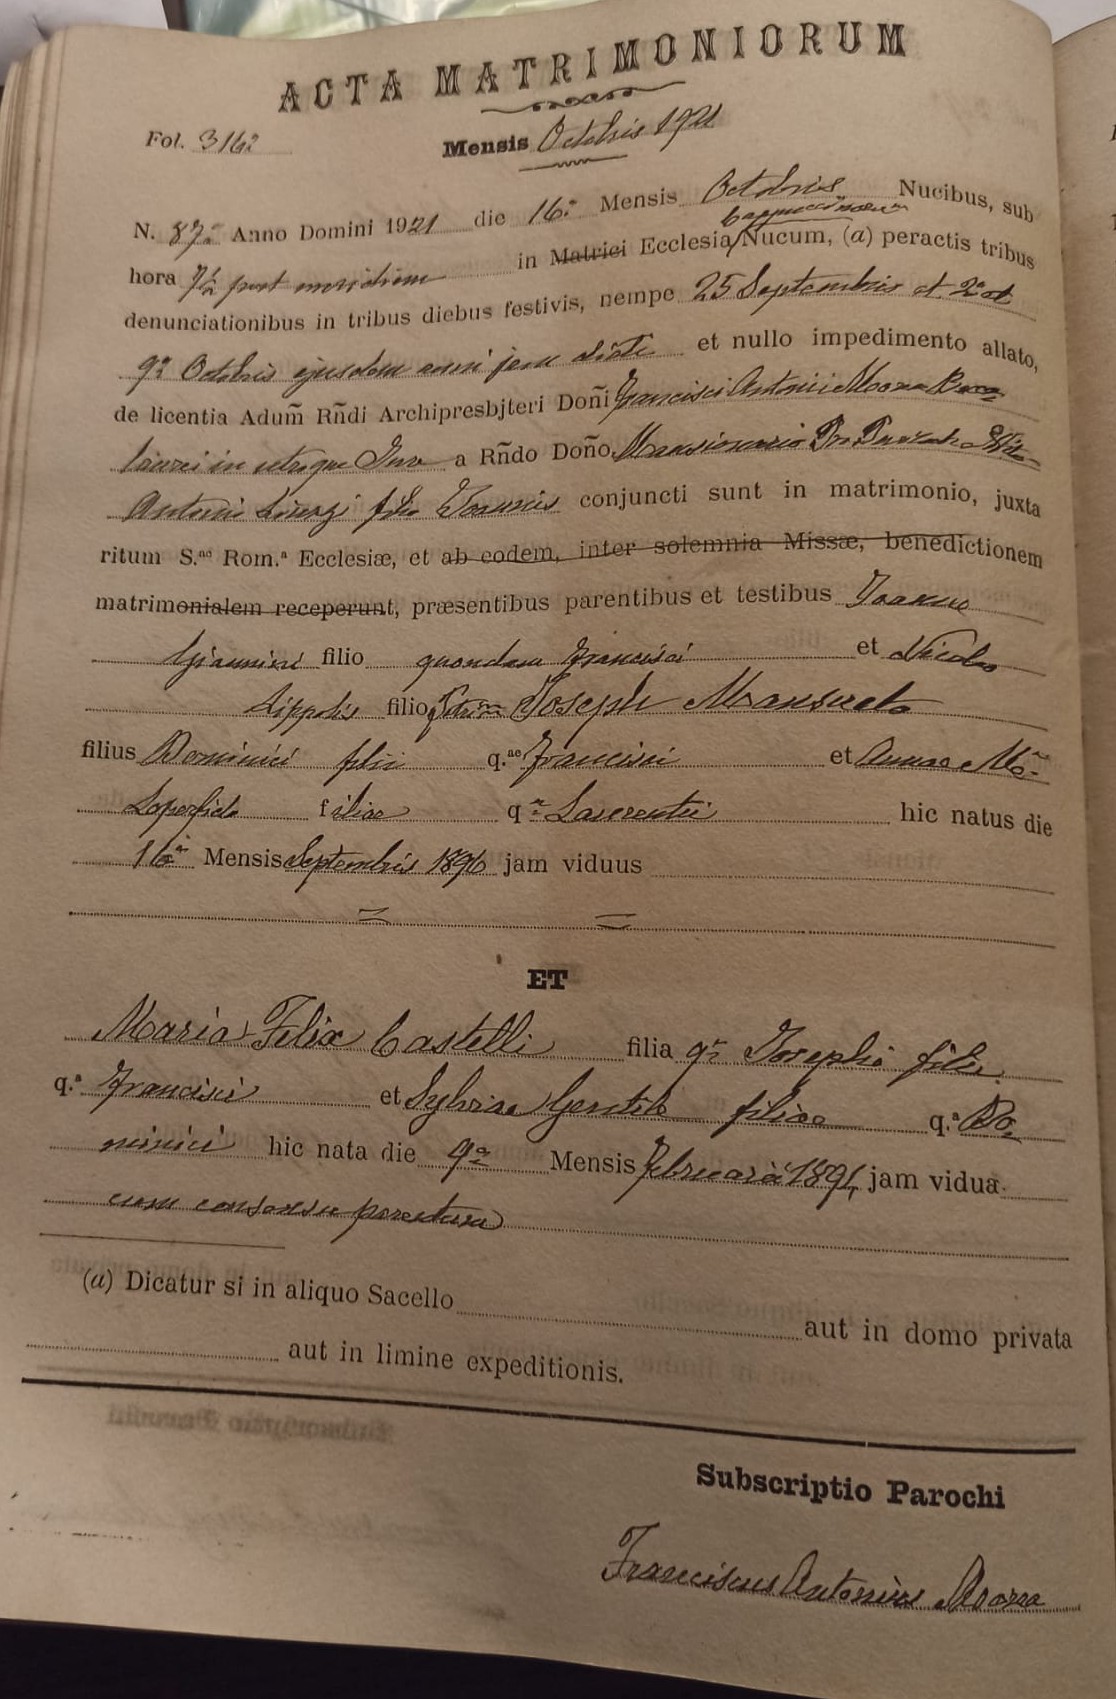 ACTA MATRIMONIORUM
Fol. 3162 Mensis Octobris 1921
N. 87.° Anno Domini 1921 die 16.° Mensis Octobris Nucibus, sub
Cappuccinorum
hora 7½ post meridiem in Matrici Ecclesia Nucum, (a) peractis tribus
denunciationibus in tribus diebus festivis, nempe 25 Septembris et 2ª et
9ª Octobris ejusdem anni jam et nullo impedimento allato,
de licentia Adum̃ Rñdi Archipresbjteri Doñi Francisci Antonii Morea Bacca
laurei in utroque Jure a Rñdo Doño Mansionario
Antonio filio Joannis conjuncti sunt in matrimonio, juxta
ritum S.ae Rom.a Ecclesiæ, et ab eodem, inter solemnia Missæ, benedictionem
matrimonialem receperunt, præsentibus parentibus et testibus Joanne
Giannini filio quondam Francisci et Nicolao
Lippolis filio Joseph Mansueto
filius Dominici filii q.ae Francisci et Annae Mª
Loperfido filiae qª Laurentii hic natus die
16ª Mensis Septembris 1896 jam viduus
= =
ET
Maria Felix Castelli filia qª Josephi filii
q.a Francisci et Sylviae Gentile filiae q.a Do
minici hic nata die 9ª Mensis Februarii 1894 jam vidua
cum consensu parentum
(a) Dicatur si in aliquo Sacello aut in domo privata
aut in limine expeditionis.
Subscriptio Parochi
Franciscus Antonius Morea